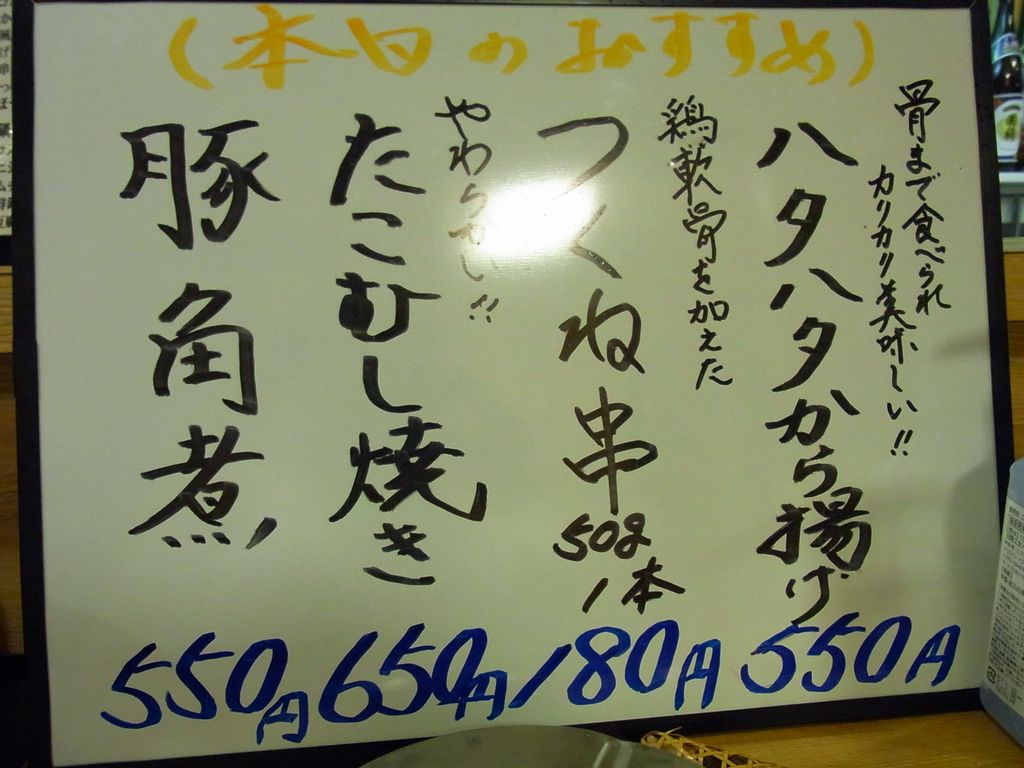 (本日のおすすめ)
骨まで食べられ
カリカリ美味しい!!
ハタハタから揚げ
550円
鶏軟骨を加えた
つくね串
50g
1本
180円
やわらかい!!
たこむし焼き
650円
豚角煮
550円